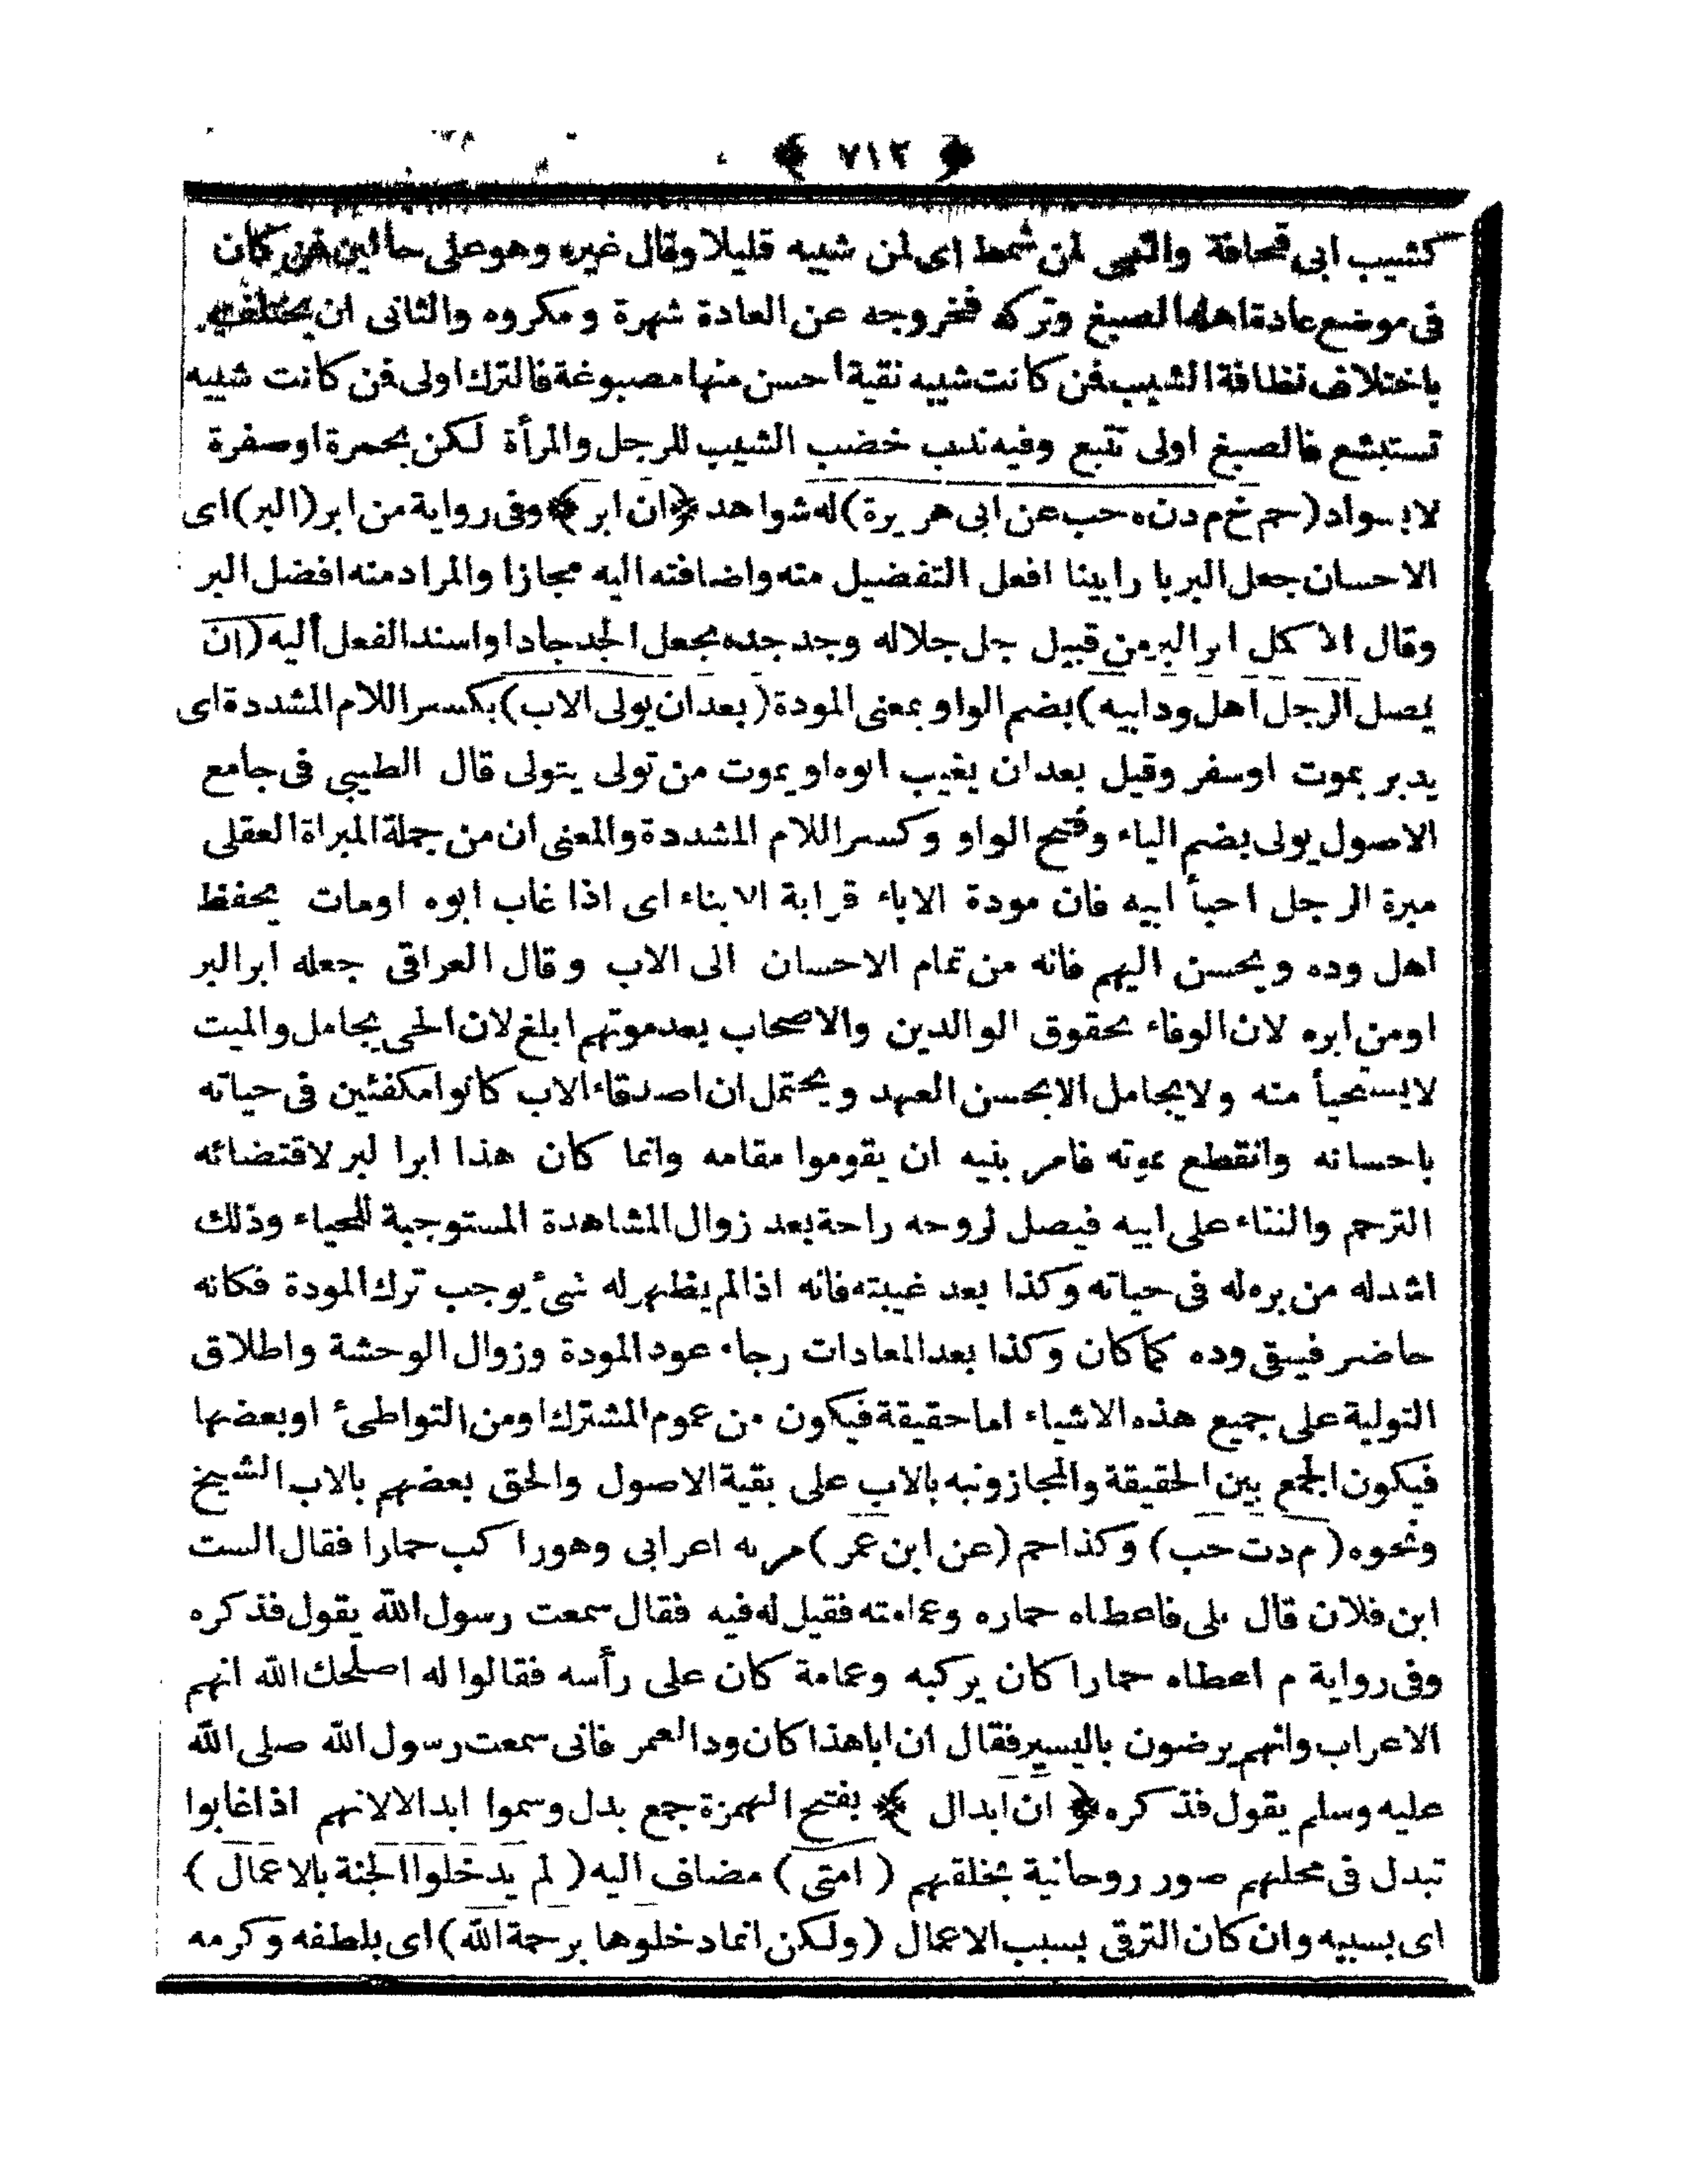 ﴿ ٧١٢ ﴾
كشيب ابى قحافة والنهى لمن شمط اى لمن شيبه قليلا وقال غيره وهو على حالين فمن كان
فى موضع عادة اهله الصبغ وتركه فخروجه عن العادة شهرة ومكروه والثانى ان يختلف
باختلاف نظافة الشيب فمن كانت شيبه نقية احسن منها مصبوغة فالترك اولى فمن كانت شيبه
تستبشع فالصبغ اولى تتبع وفيه ندب خضب الشيب للرجل والمرأة لكن بحمرة او صفرة
لا بسواد (حم خ م د ن ه حب عن ابى هريرة) له شواهد ﴿ان ابر﴾ وفى رواية من ابر (البر) اى
الاحسان جعل البر با را بينا افعل التفضيل منه واضافته اليه مجازا والمراد منه افضل البر
وقال الاكمل ابر البر من قبيل جل جلاله وجد جده بجعل الجد جادا واسند الفعل أليه (ان
يصل الرجل اهل ود ابيه) بضم الواو بمعنى المودة (بعد ان يولى الاب) بكسر اللام المشددة اى
يدبر بموت او سفر وقيل بعد ان يغيب ابوه او يموت من تولى يتولى قال الطيبى فى جامع
الاصول يولى بضم الياء وفتح الواو وكسر اللام المشددة والمعنى ان من جملة المبراة العقلى
مبرة الرجل احبأ ابيه فان مودة الاباء قرابة الابناء اى اذا غاب ابوه اومات يحفظ
اهل وده ويحسن اليهم فانه من تمام الاحسان الى الاب وقال العراقى جعله ابر البر
اومن ابره لان الوفاء بحقوق الوالدين والاصحاب بعد موتهم ابلغ لان الحى يجامل والميت
لايستحيأ منه ولايجامل الابحسن العهد ويحتمل ان اصدقاء الاب كانوا مكفئين فى حياته
باحسانه وانقطع بموته فامر بنيه ان يقوموا مقامه وانما كان هذا ابرا لبر لاقتضائه
الترحم والثناء على ابيه فيصل لروحه راحة بعد زوال المشاهدة المستوجبة للحياء وذلك
اشد له من بره له فى حياته وكذا بعد غيبته فانه اذا لم يظهر له شئ يوجب ترك المودة فكانه
حاضر فيبقى وده كماكان وكذا بعد المعادات رجاء عود المودة وزوال الوحشة واطلاق
التولية على جميع هذه الاشياء اما حقيقة فيكون من عموم المشترك اومن التواطئ اوبعضها
فيكون الجمع بين الحقيقة والمجاز ونبه بالاب على بقية الاصول والحق بعضهم بالاب الشيخ
ونحوه (م د ت حب) وكذا حم (عن ابن عمر) مر به اعرابى وهو راكب حمارا فقال الست
ابن فلان قال بلى فاعطاه حماره وعمامته فقيل له فيه فقال سمعت رسول الله يقول فذكره
وفى رواية م اعطاه حمارا كان يركبه وعمامة كان على رأسه فقالوا له اصلحك الله انهم
الاعراب وانهم يرضون باليسير فقال ان اباهذا كان ودا لعمر فانى سمعت رسول الله صلى الله
عليه وسلم يقول فذكره ﴿ ان ابدال ﴾ بفتح الهمزة جمع بدل وسموا ابدالا لانهم اذا غابوا
تبدل فى محلهم صور روحانية بخلقهم (امتى) مضاف اليه (لم يدخلوا الجنة بالاعمال)
اى بسببه وان كان الترقى بسبب الاعمال (ولكن انما دخلوها برحمة الله) اى بلطفه وكرمه